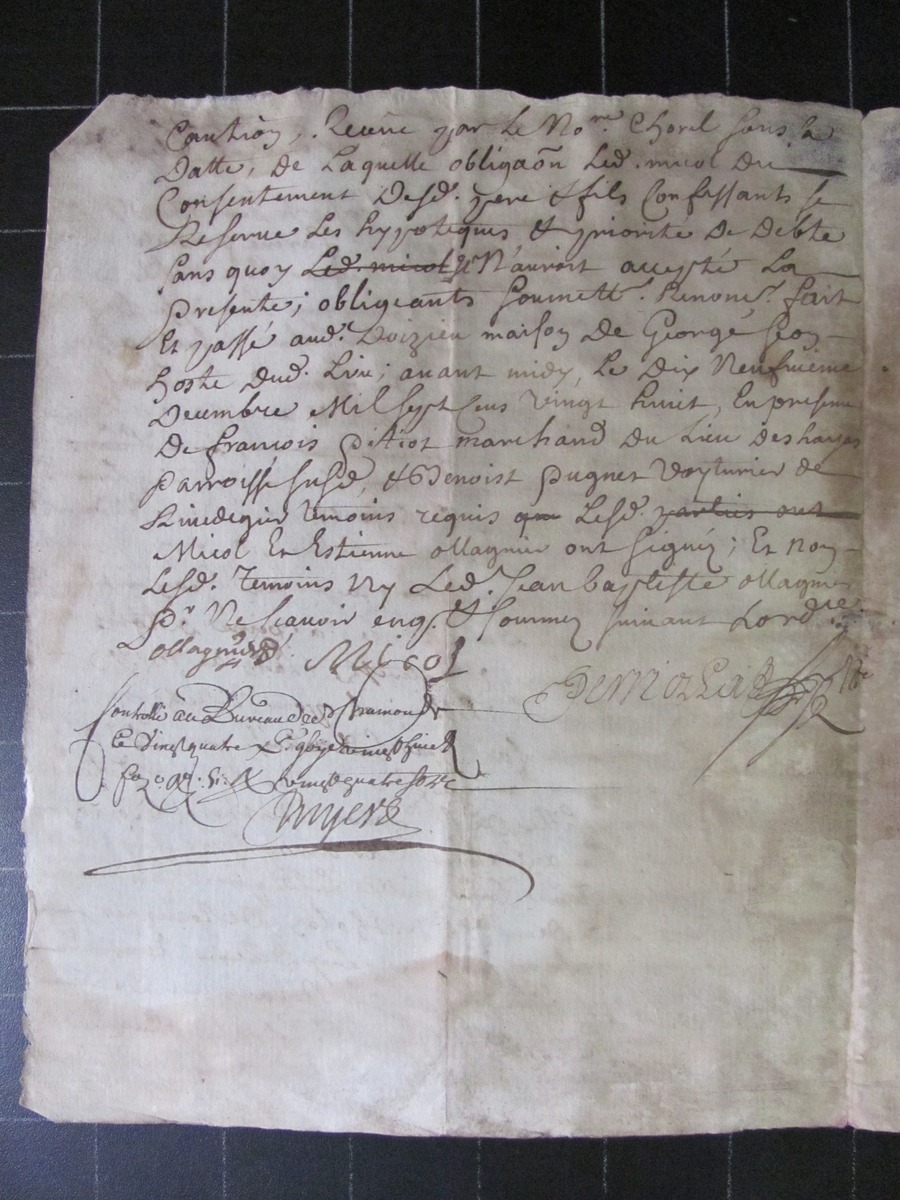 Caution, Receüe par le No.re Chorel sous sa
Datte, de Laquelle obligaõn Led. micol du
Consentement Desd. pere & fils Confessants se
Reserue Les hypoteques & priorité De Debte
sans quoy Led. micol il N'auroit accepté La
presente; obligeants soumett. Renonc. fait
Et passé aud. Doizieu maison De George
hoste Dud. Lieu; auant midy, Le Dix Neufuieme
Decembre Mil sept sens vingt huict, En presence
De francois pitiot marchand du Lieu des hayes
parroisse susd, & Benoist pugnet voyturier de
temoins requis que Lesd. parties ont
Micol Et Estienne ollagnier ont signé; Et non
Lesd. Temoins Ny Led. Jean baptiste ollagnier
pr. Ne scauoir enq. & sommez suiuant Lord.ce
ollagnier Micol
Controllé au Bureau de St Chamond
Le vingt quatre vingt huict
vingt quatre sols